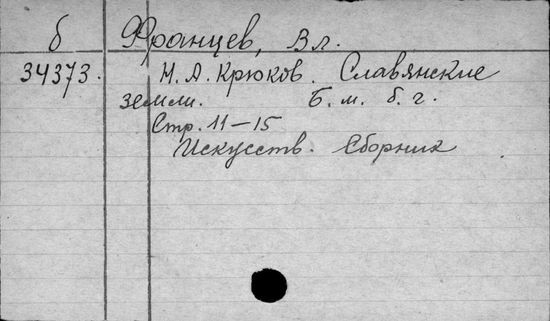 б Францев, Вл.
34373. Н. А. Крюков. Славянские
земли. Б. м. б. г.
Стр. 11–15
Искусств. Сборник